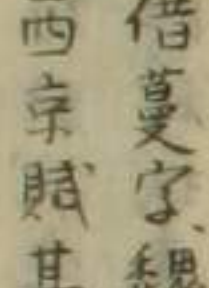 借蔓字魏
西京賦其